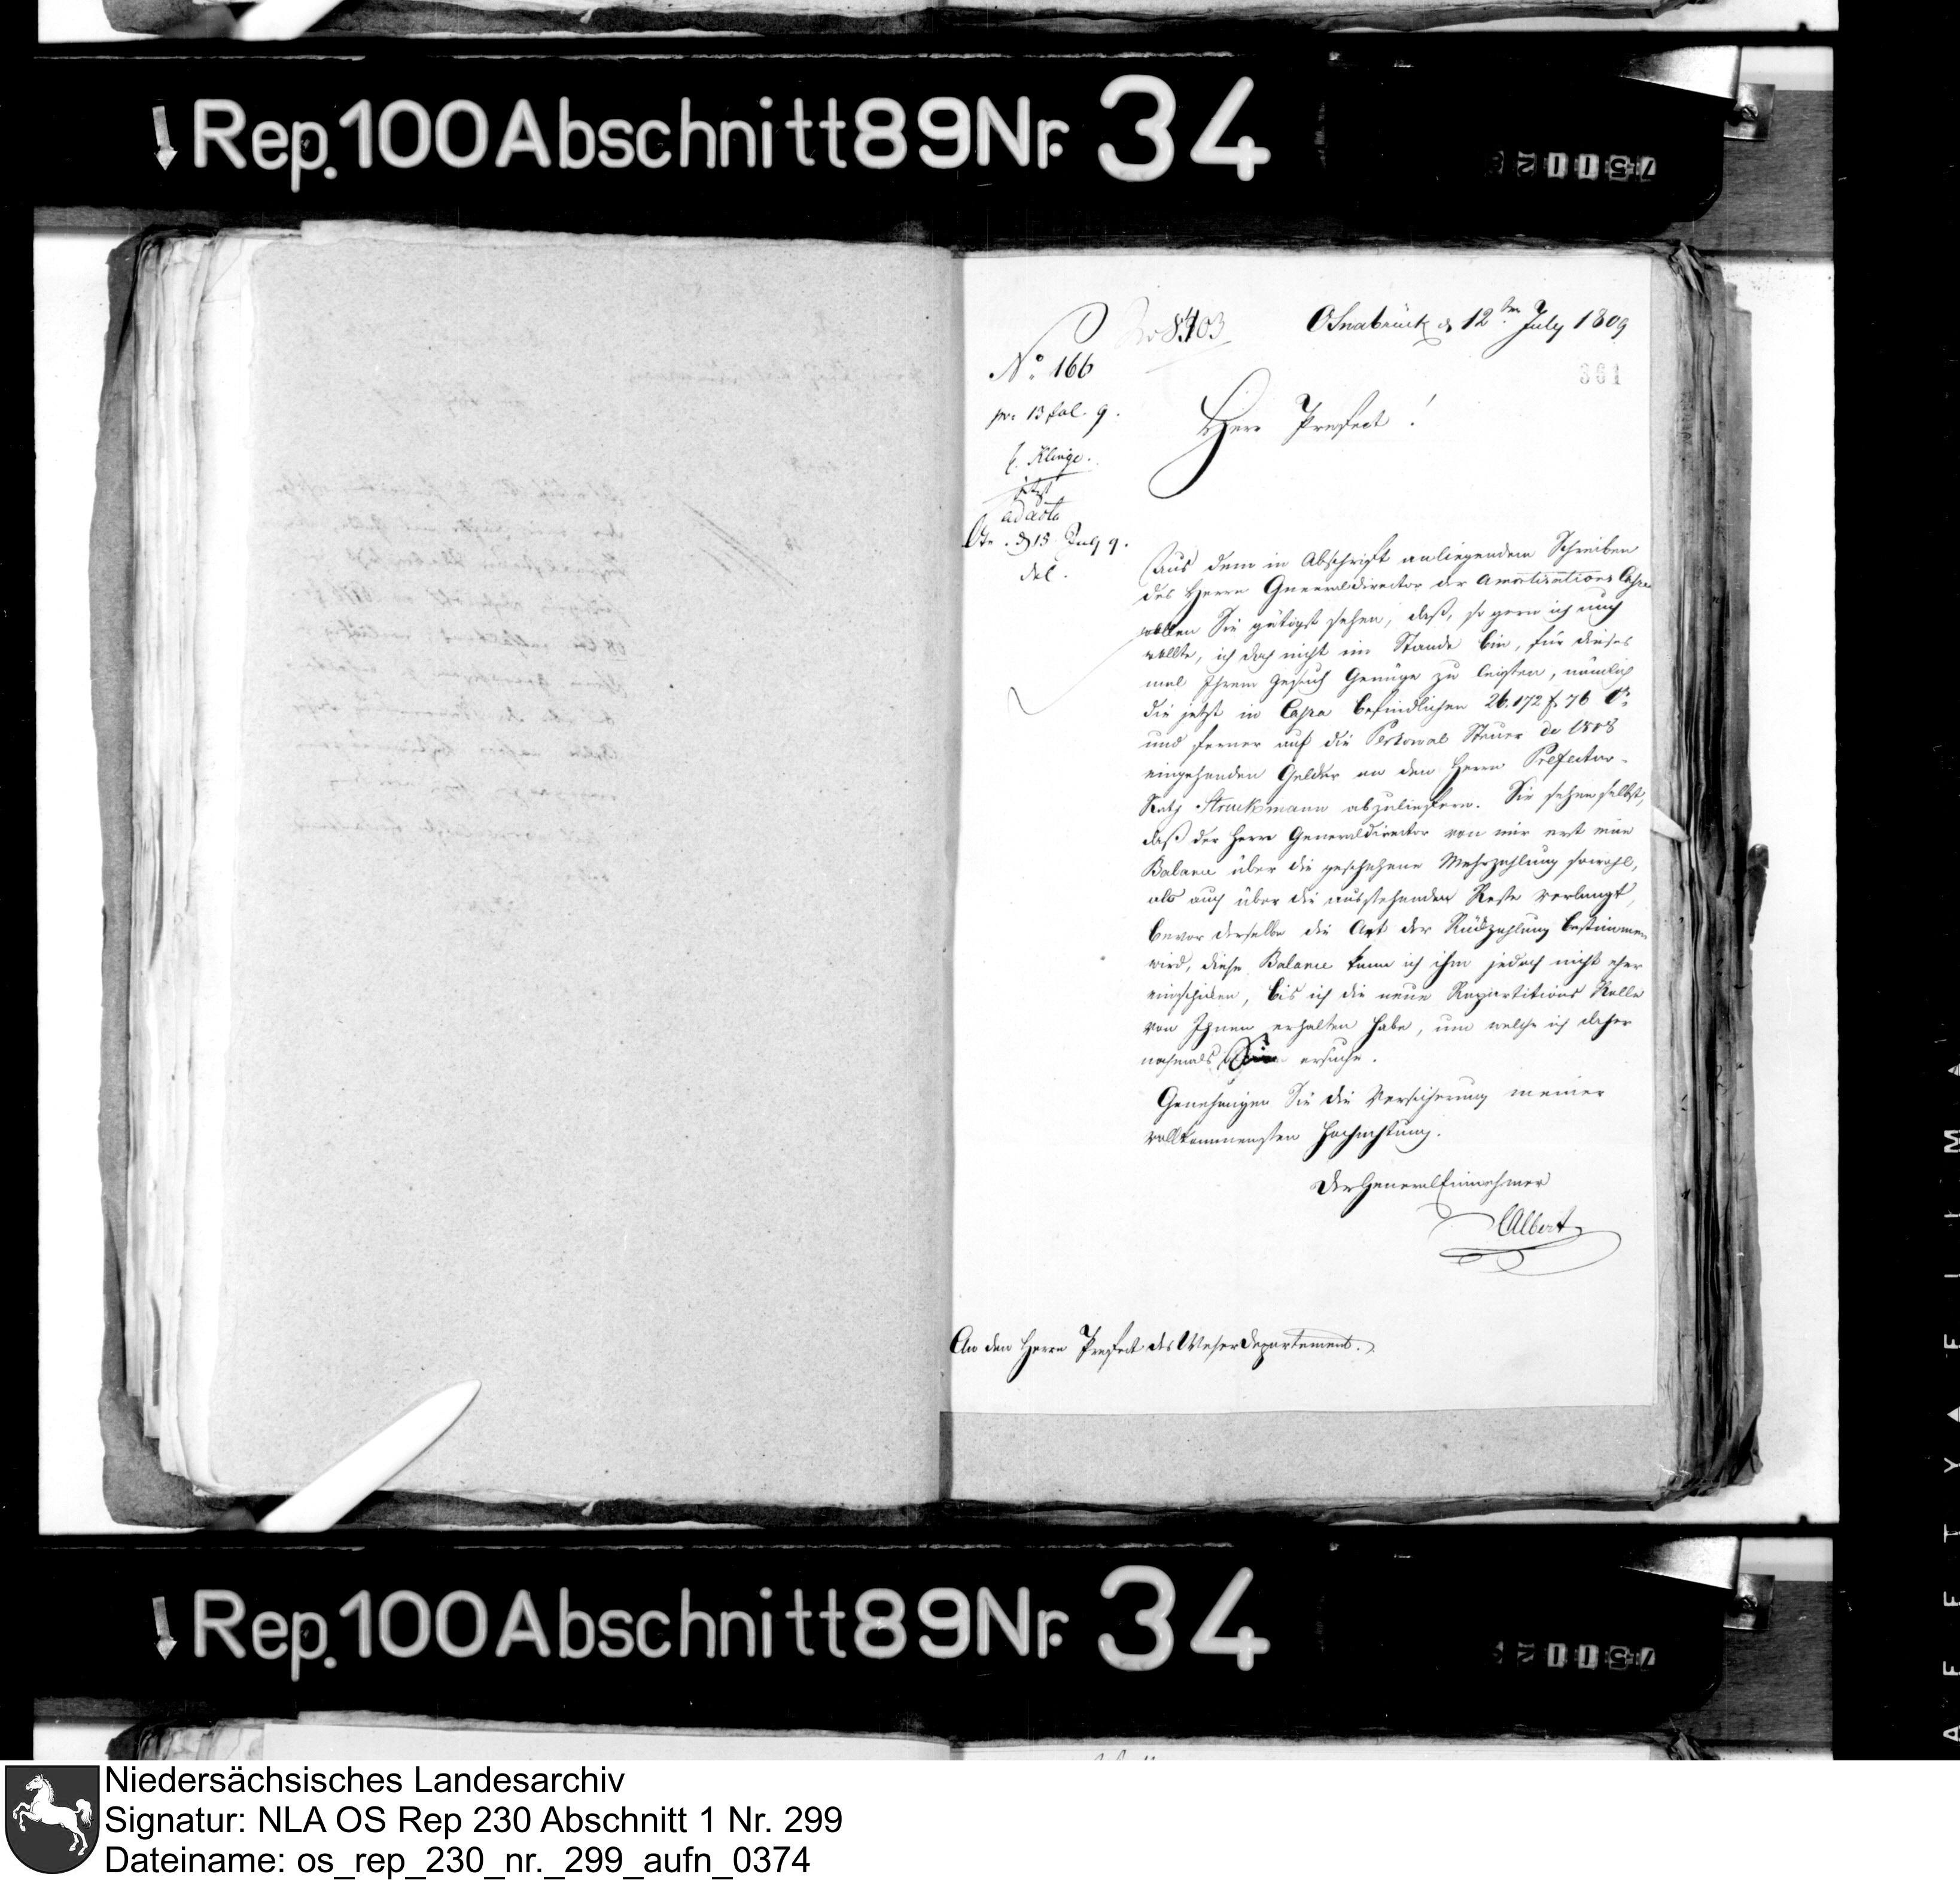 Rep. 100 Abschnitt 89 Nr. 34
No 8403
Osnabrück d 12ten July 1809
No. 166
361
pr. 13 Jul. 9.
Herr Praefect!
H. Klinge.
ad acta
Osn. d 15 July 9.
del.
Aus dem in Abschrift anliegendem Schreiben
des Herrn Generaldirector der Amortisations Casse
wollen Sie gütigst sehen, daß, so gern ich auch
wollte, ich doch nicht im Stande bin, für dieses
mal Ihrem Gesuch Genüge zu leisten, nämlich
die jetzt in Cassa befindlichen 26,172 f 76 Cs
und ferner auf die Personal Steuer de 1808
eingehenden Gelder an den Herrn Prefectur-
Rath Struckmann abzuliefern. Sie sehen selbst,
daß der Herr Generaldirector von mir erst eine
Balance über die geschehene Mehrzahlung sowohl,
als auch über die ausstehenden Reste verlangt,
bevor derselbe die Art der Rückzahlung bestimmen
wird, diese Balance kann ich ihm jedoch nicht eher
einschicken, bis ich die neue Repartitions Rolle
von Ihnen erhalten habe, um welche ich daher
nochmals Sie ersuche.
Genehmigen Sie die Versicherung meiner
vollkommensten Hochachtung.
Der General Einnehmer
CAlbert
An den Herrn Praefect des Weser Departement.
Rep. 100 Abschnitt 89 Nr. 34
Niedersächsisches Landesarchiv
Signatur: NLA OS Rep 230 Abschnitt 1 Nr. 299
Dateiname: os_rep_230_nr._299_aufn_0374